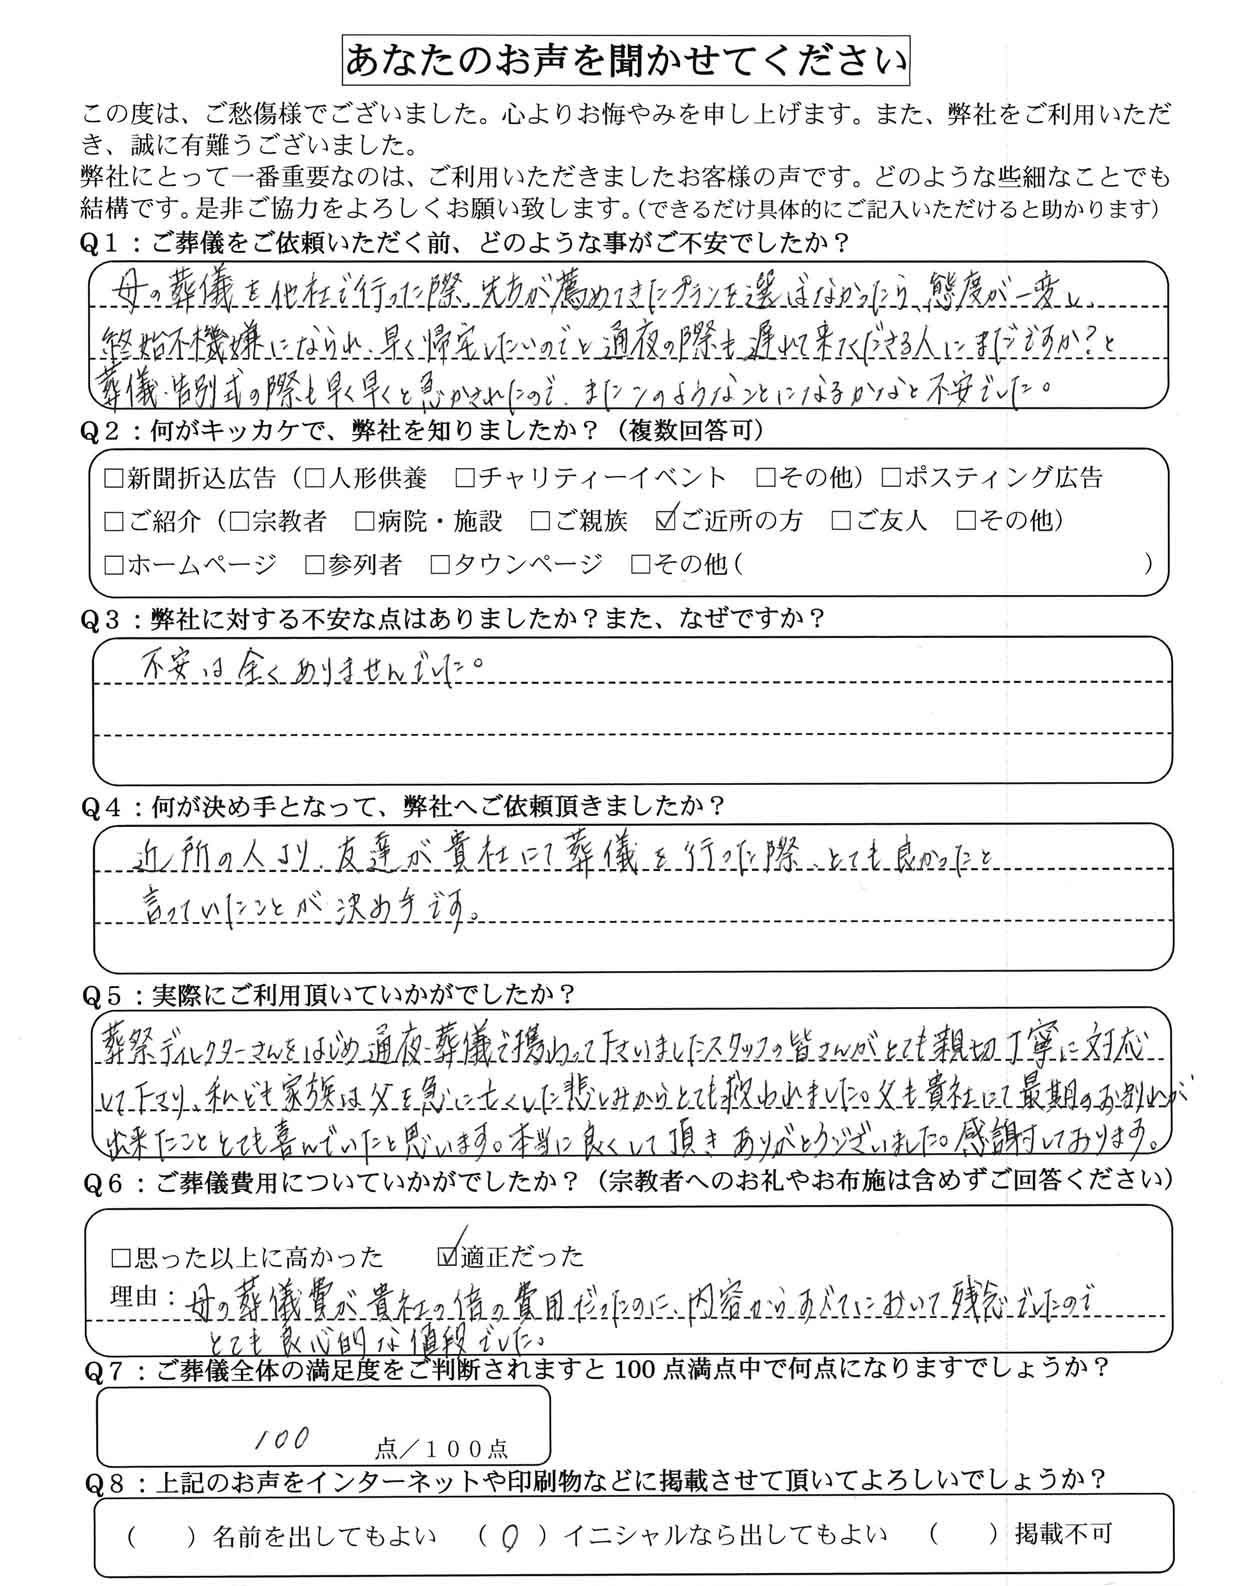 あなたのお声を聞かせてください
この度は、ご愁傷様でございました。心よりお悔やみを申し上げます。また、弊社をご利用いただ
き、誠に有難うございました。
弊社にとって一番重要なのは、ご利用いただきましたお客様の声です。どのような些細なことでも
結構です。是非ご協力をよろしくお願い致します。（できるだけ具体的にご記入いただけると助かります）
Q１：ご葬儀をご依頼いただく前、どのような事がご不安でしたか？
母の葬儀を他社で行った際、先方が薦めてきたプランを選ばなかったら、態度が一変し、
終始不機嫌になられ、早く帰宅したいのでと通夜の際も遅れて来てくださる人にまだですか？と
葬儀・告別式の際も早く早くと急かされたので、またこのようなことになるかなと不安でした。
Q２：何がキッカケで、弊社を知りましたか？（複数回答可）
□新聞折込広告（□人形供養　□チャリティーイベント　□その他）□ポスティング広告
□ご紹介（□宗教者　□病院・施設　□ご親族　☑ご近所の方　□ご友人　□その他）
□ホームページ　□参列者　□タウンページ　□その他（　　　　　　　　）
Q３：弊社に対する不安な点はありましたか？また、なぜですか？
不安は全くありませんでした。
Q４：何が決め手となって、弊社へご依頼頂きましたか？
近所の人より、友達が貴社にて葬儀を行った際、とても良かったと
言っていたことが決め手です。
Q５：実際にご利用頂いていかがでしたか？
葬祭ディレクターさんをはじめ通夜・葬儀で携わって下さいましたスタッフの皆さんがとても親切丁寧に対応
して下さり、私ども家族は父を急に亡くした悲しみからとても救われました。父も貴社にて最期のお別れが
出来たこととても喜んでいたと思います。本当に良くして頂きありがとうございました。感謝しております。
Q６：ご葬儀費用についていかがでしたか？（宗教者へのお礼やお布施は含めずご回答ください）
□思った以上に高かった　☑適正だった
理由：母の葬儀費が貴社の倍の費用だったのに、内容からすべてにおいて残念でしたので
とても良心的な値段でした。
Q７：ご葬儀全体の満足度をご判断されますと100点満点中で何点になりますでしょうか？
100　点／１００点
Q８：上記のお声をインターネットや印刷物などに掲載させて頂いてよろしいでしょうか？
（　　）名前を出してもよい　（ ○ ）イニシャルなら出してもよい　（　　）掲載不可